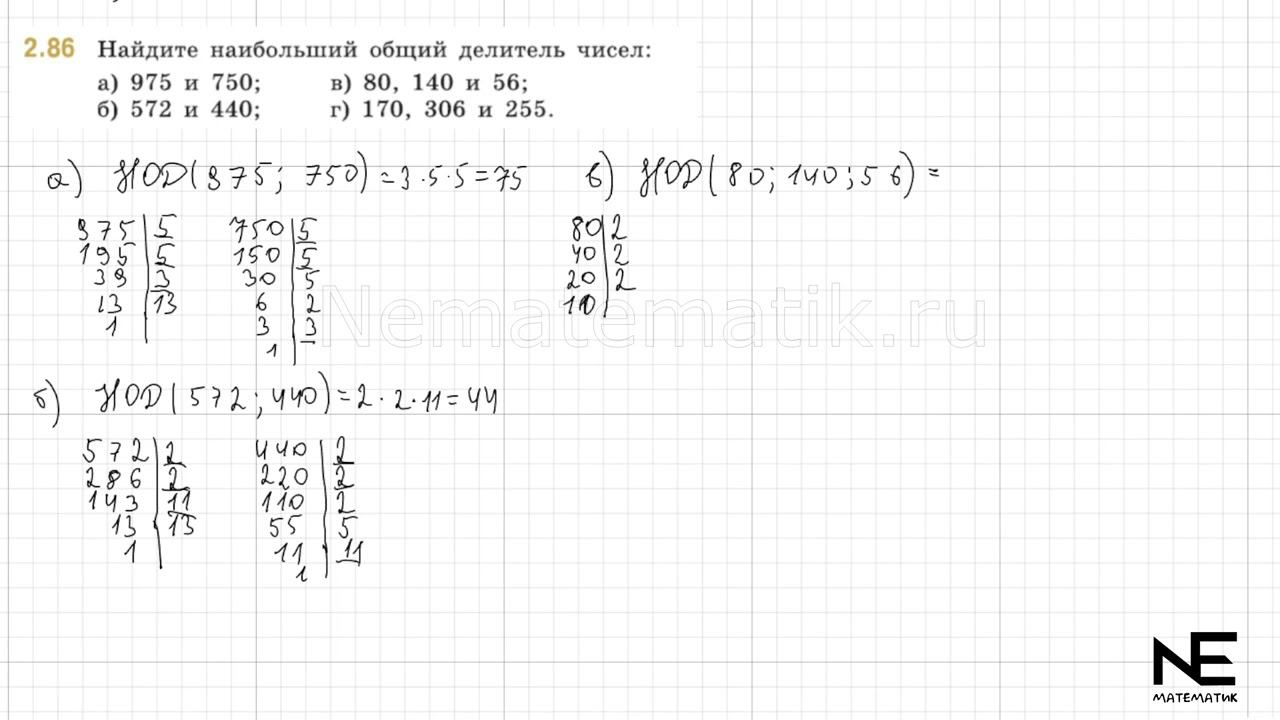 2.86 Найдите наибольший общий делитель чисел:
а) 975 и 750; в) 80, 140 и 56;
б) 572 и 440; г) 170, 306 и 255.
а) НОД(975; 750) = 3·5·5 = 75
975 | 5
195 | 5
39 | 3
13 | 13
1 |
750 | 5
150 | 5
30 | 5
6 | 2
3 | 3
1 |
б) НОД(572; 440) = 2·2·11 = 44
572 | 2
286 | 2
143 | 11
13 | 13
1 |
440 | 2
220 | 2
110 | 2
55 | 5
11 | 11
1 |
в) НОД(80; 140; 56) =
80 | 2
40 | 2
20 | 2
10 |
Nematematik.ru
NE
МАТЕМАТИК